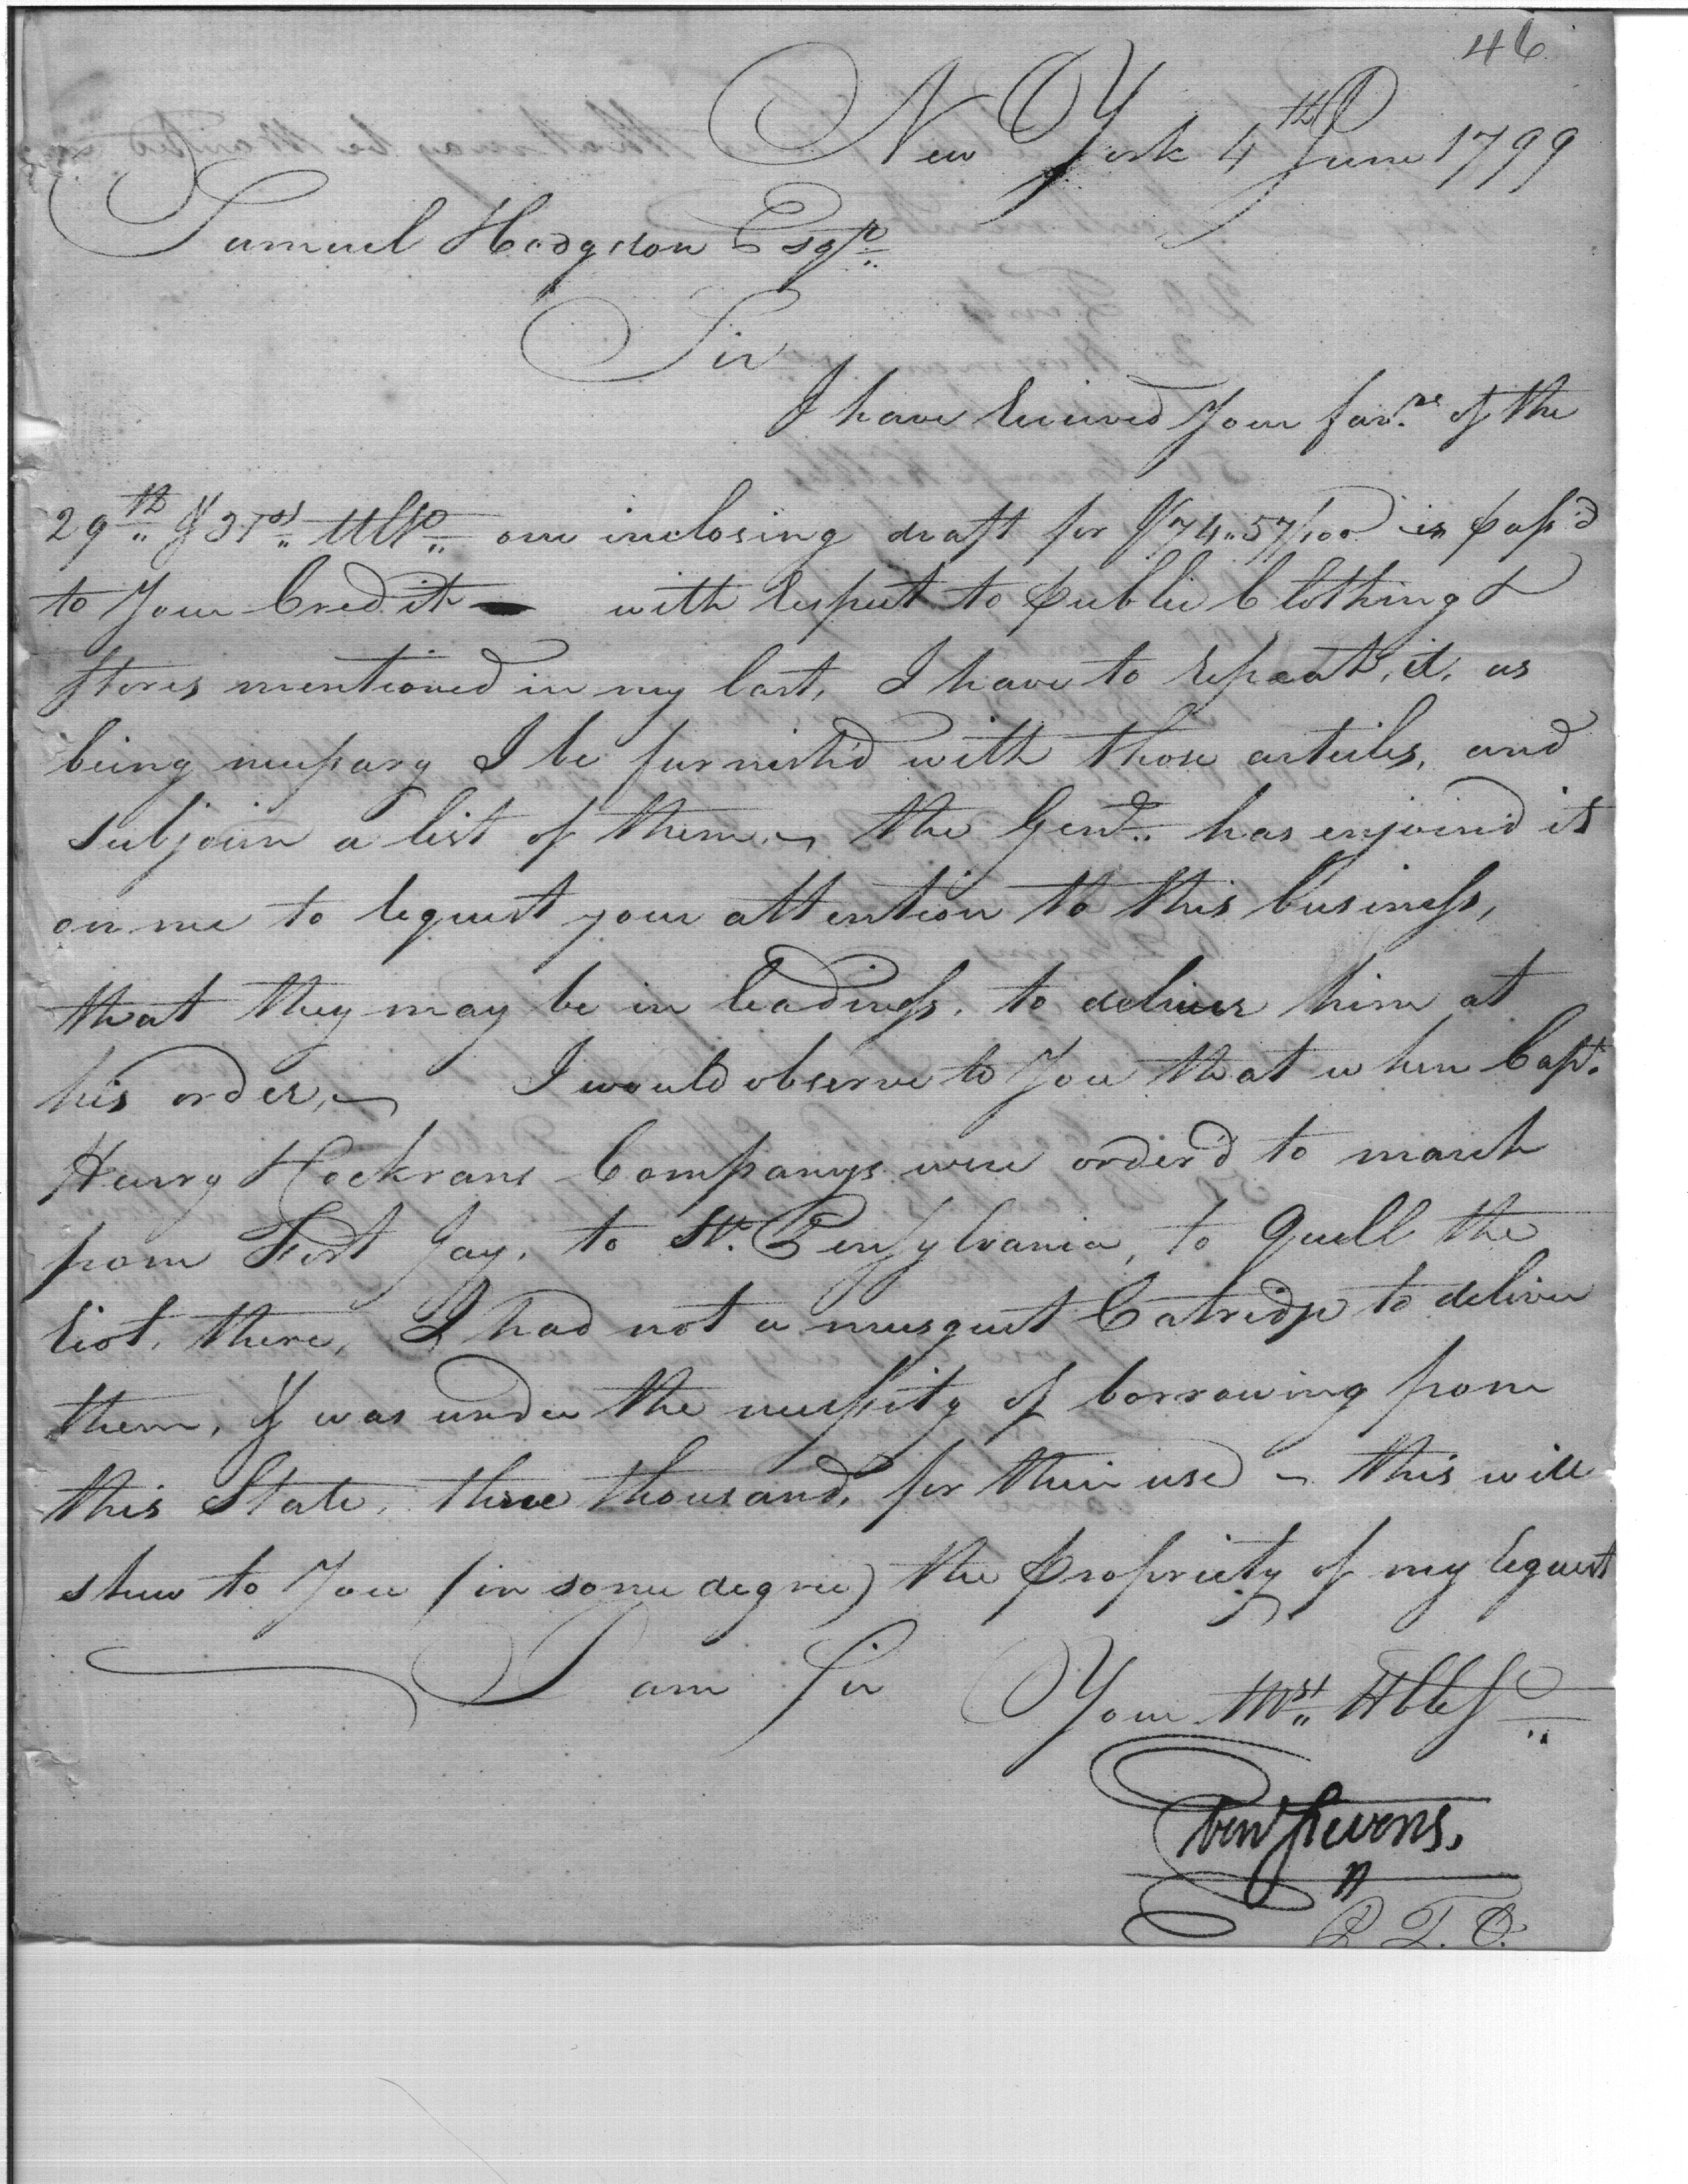 46
New York 4th June 1799
Samuel Hodgsdon Esqr
Sir
I have received Your favrs of the
29th & 31st Ulto one inclosing draft for $74.57/100 is pass'd
to Your Credit — with respect to public Clothing &
Stores mentioned in my last, I have to repeat, it, as
being necessary I be furnish'd with those articles, and
subjoin a list of them, – the Genl has enjoin'd it
on me to request your attention to this business,
that they may be in readiness, to deliver him at
his order, – I would observe to You that when Capt.
Henry Cockrans Companys were order'd to march
from Fort Jay, to Pensylvania, to Quell the
riot, there, I had not a musquet Catridge to deliver
them, & was under the necessity of borrowing from
this State, three thousand, for their use – this will
shew to You (in some degree) the propriety of my request
I am Sir Your Mst Hble St
Eben Stevens.
P. T. O.